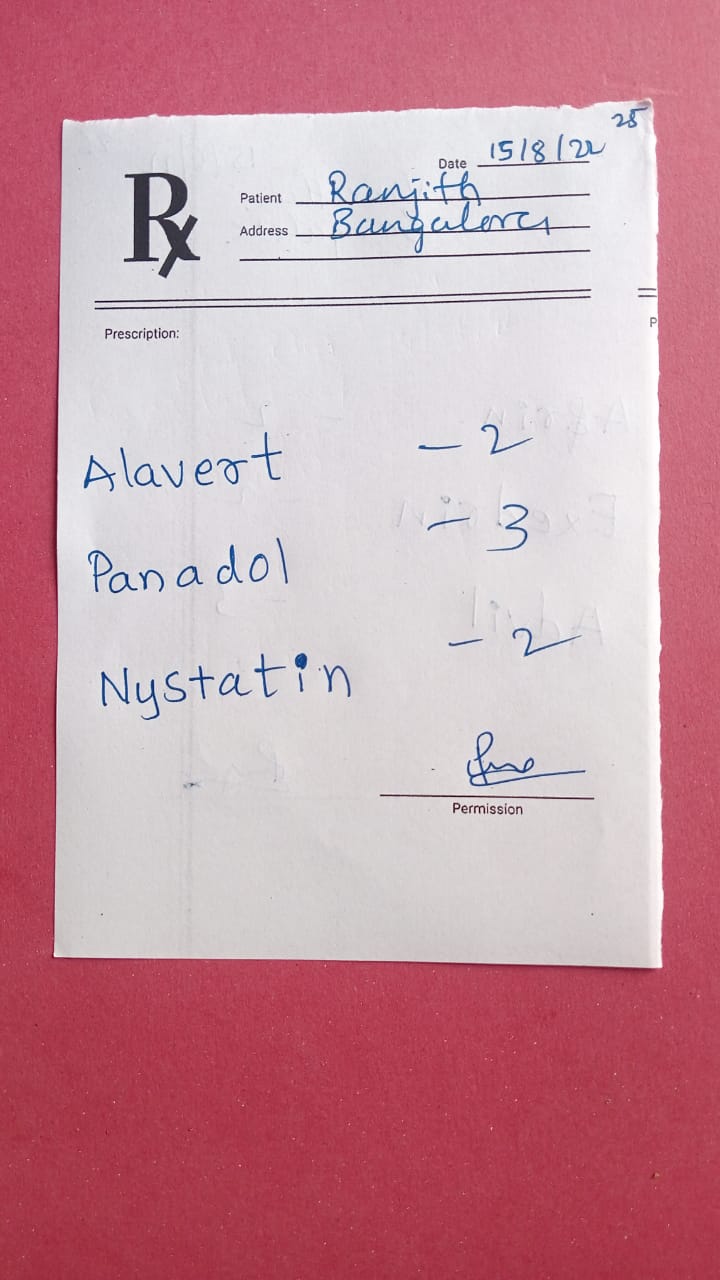 28
Date 15/8/22
Rx
Patient Ranjith
Address Bangalore
Prescription:
P
Alavert - 2
Panadol - 3
Nystatin - 2
Permission